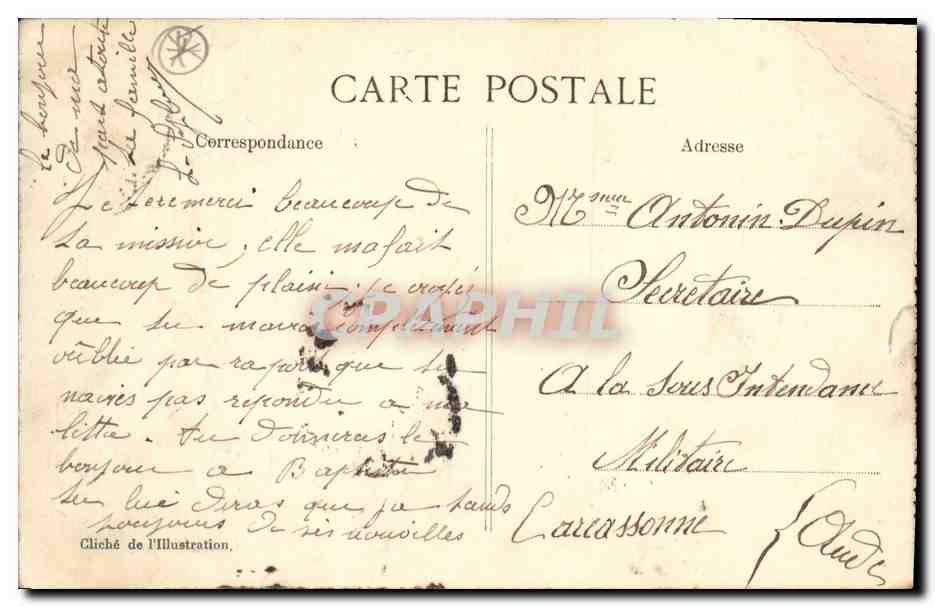 CARTE POSTALE
Correspondance
Adresse
le bonjour
de ma
part a toute
la famille
Je te remerci beaucoup de
ta missive, elle ma fait
beaucoup de plaisir je croyés
que tu mavai complètement
oublié par raport que tu
navres pas repondu a ma
lettre. tu donneras le
bonjour a Baptiste
tu lui diras que jatands
toujours de ses nouvelles
Cliché de l'Illustration.
Antonin Dupin
Secretaire
A la Sous Intendance
Militaire
Carcassonne
Aude
CPAPHIL